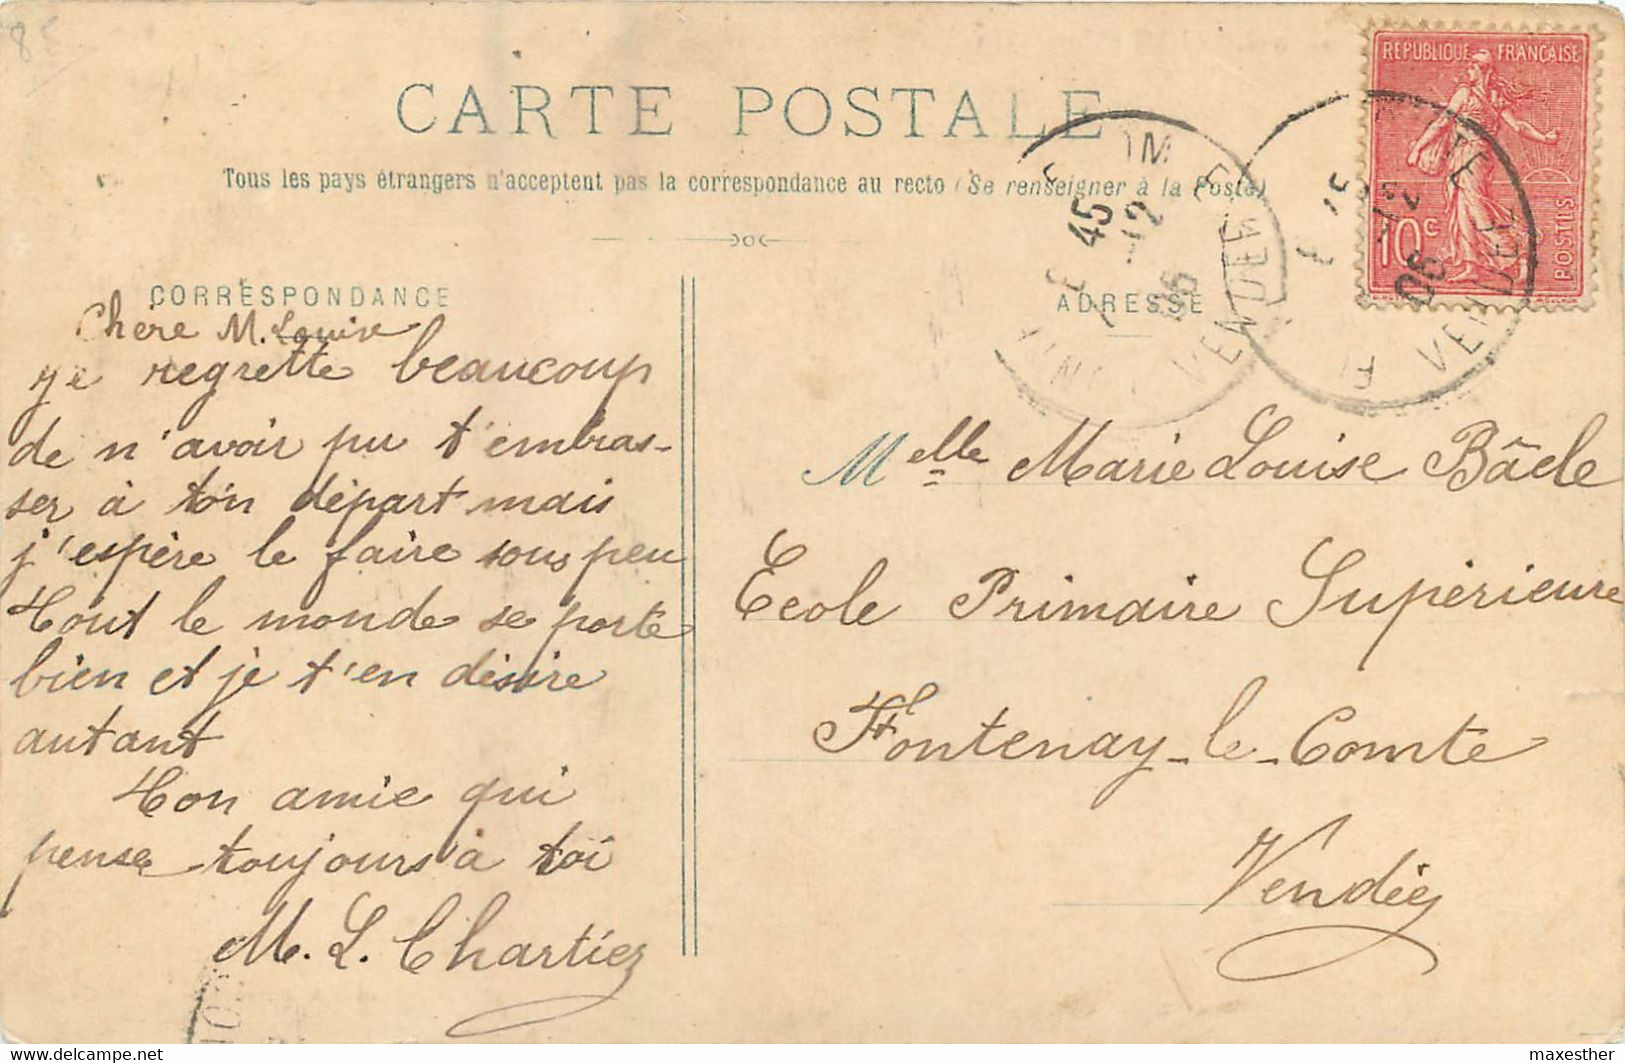 85
CARTE POSTALE
Tous les pays étrangers n'acceptent pas la correspondance au recto (Se renseigner à la Poste)
REPUBLIQUE FRANÇAISE
10c
POSTES
45
12
06
VENDEE
12
06
VENDEE
CORRESPONDANCE
Chère M. Louise
je regrette beaucoup
de n'avoir pu t'embras-
ser à ton départ mais
j'espère le faire sous peu
Tout le monde se porte
bien et je t'en désire
autant
Ton amie qui
pense toujours à toi
M. L. Chartier
ADRESSE
Melle Marie Louise Bâcle
Ecole Primaire Supérieure
Fontenay-le-Comte
Vendée
Delcampe.net
maxesther